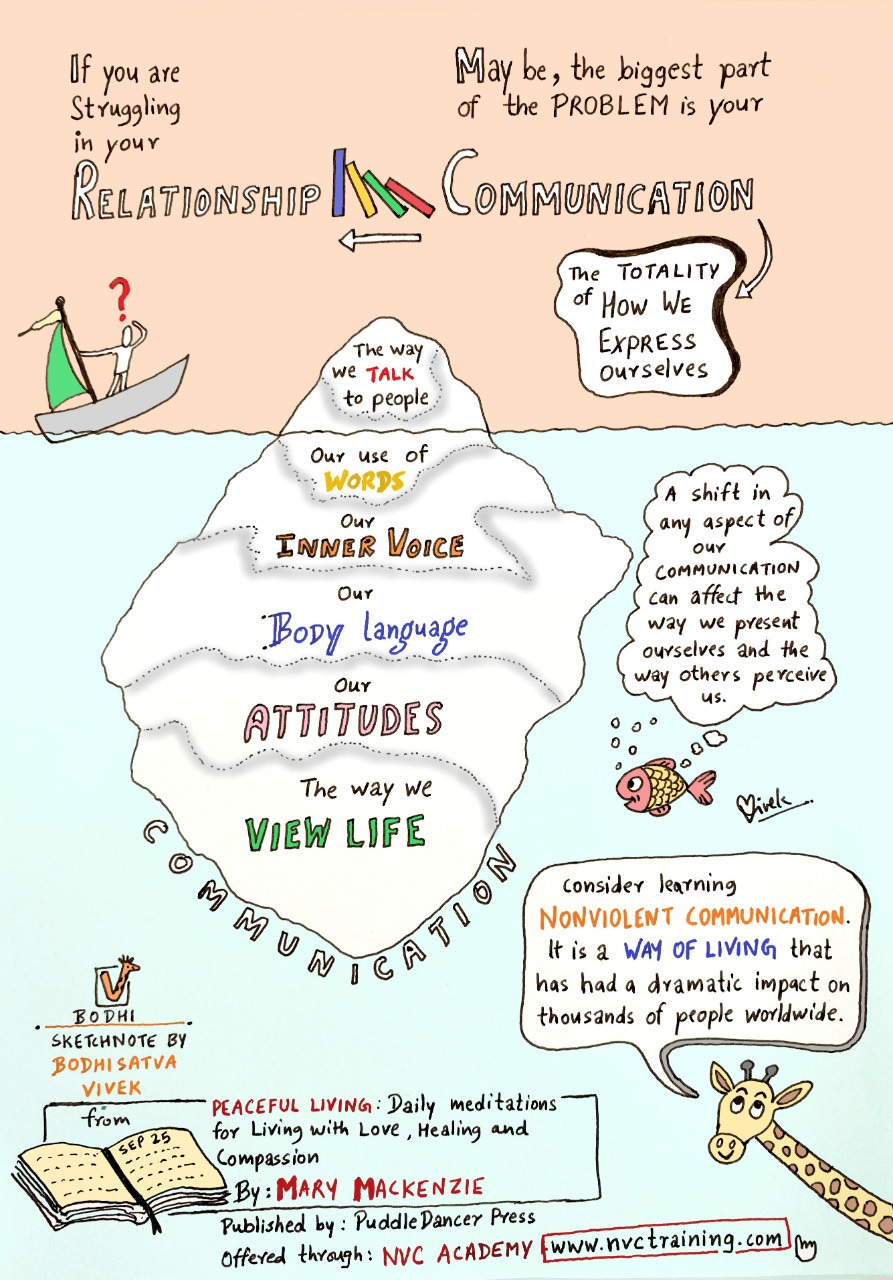 If you are
Struggling
in your
RELATIONSHIP
May be, the biggest part
of the PROBLEM is your
COMMUNICATION
The TOTALITY
of HOW WE
EXPRESS
OURSELVES
?
The way
we TALK
to people
Our use of
WORDS
Our
INNER VOICE
Our
BODY language
Our
ATTITUDES
The way we
VIEW LIFE
COMMUNICATION
A shift in
any aspect of
our
COMMUNICATION
can affect the
way we present
ourselves and the
way others perceive
us.
Vivek
Consider learning
NONVIOLENT COMMUNICATION.
It is a WAY OF LIVING that
has had a dramatic impact on
thousands of people worldwide.
V
BODHI
SKETCHNOTE BY
BODHISATVA
VIVEK
from
SEP 25
PEACEFUL LIVING: Daily meditations
for Living with Love, Healing and
Compassion
By: MARY MACKENZIE
Published by: PuddleDancer Press
Offered through: NVC ACADEMY www.nvctraining.com